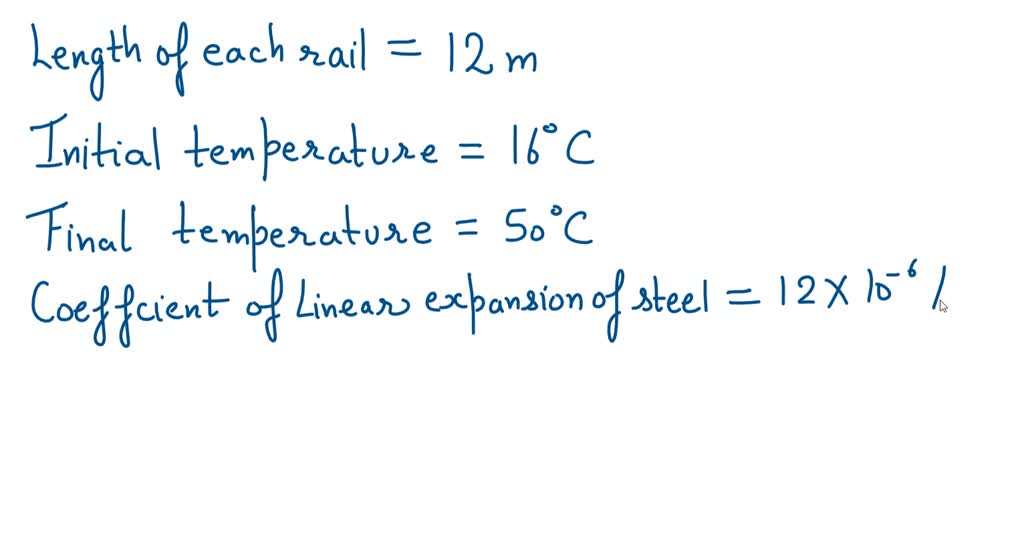 Length of each rail = 12 m
Initial temperature = 16°C
Final temperature = 50°C
Coeffcient of Linear expansion of steel = 12 × 10⁻⁶ /